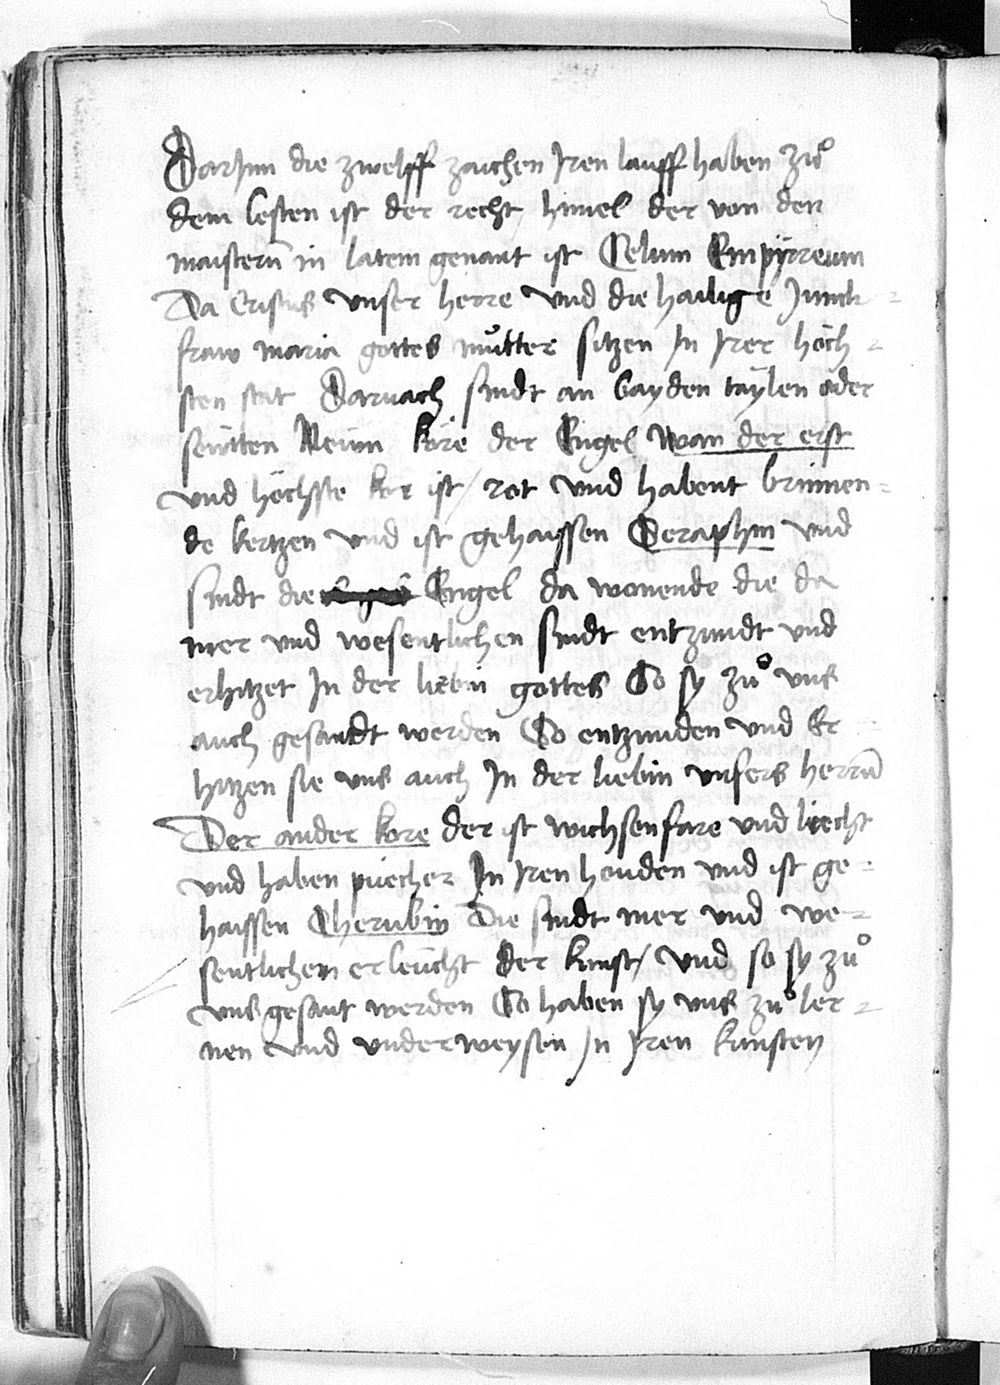 Darjnn die zwelff zaichen Jren lauff haben zů
dem lesten ist der recht himel der von den
maistern̄ in latein genant ist Celum Empÿrreum
Da Cristus vnser herre vnd die hailige Junck-
fraw maria gottes můtter sitzen In Jrer höch-
sten stat Darnach sindt an bayden taÿlen oder
seÿtten Neün köre der Engel Wan der erst
vnd höchste kor ist / rot vnd habent brinnen-
de kertzen vnd ist gehaissen Seraphin vnd
sindt die Engel da wonende die da
mer vnd wesentlichen sindt entzündt vnd
erhitzet In der liebin gottes So sy zů vns
auch gesandt werden So entzünden vnd Er
hitzen sie vns auch In der liebin vnsers herrn̄
Der ander kore der ist wichsenfare vnd liecht
vnd haben püecher In Jren henden vnd ist ge-
haissen Cherubin Die sindt mer vnd we-
sentlichen erleücht der kunst / vnd so sy zů
vns gesant werden So haben sy vns zů ler-
nen vnd vnderweysen In Jren kunsten